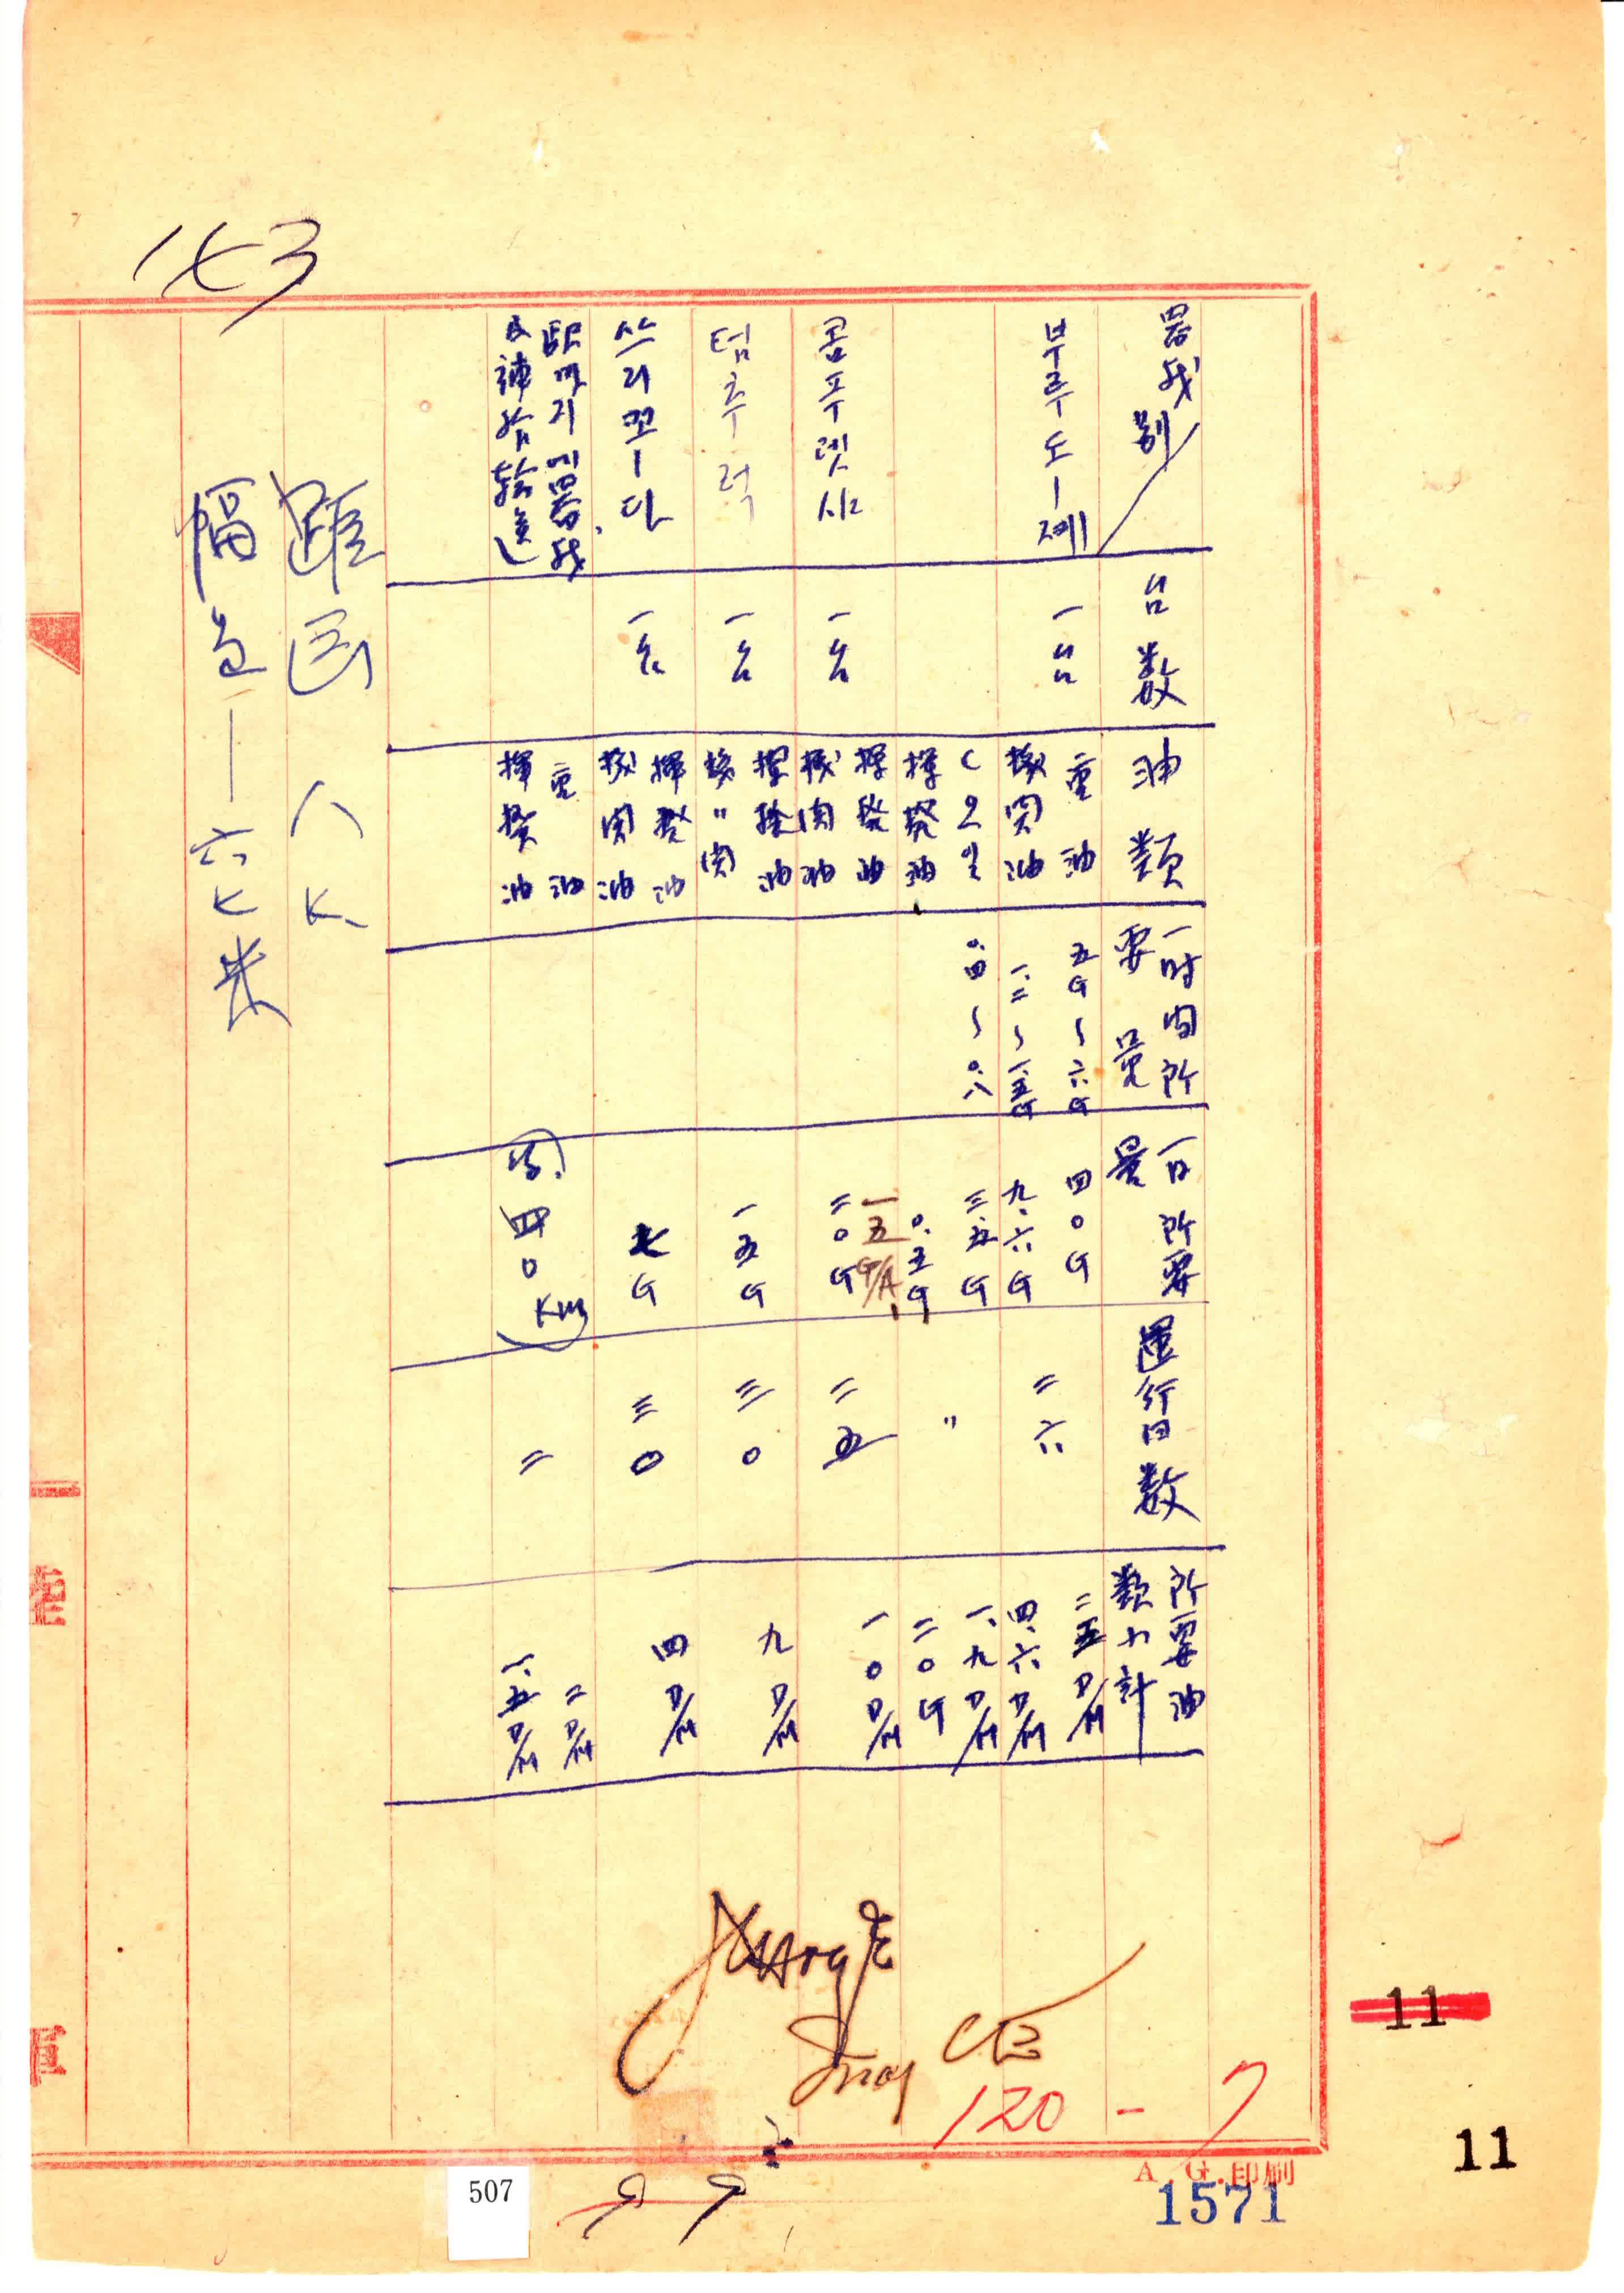 163
器材別
台数
油類
一時間所
要量
一日所要
量
運行日数
所要油
類小計
부루도ー제
一台
重油
五G〜六G
四〇G
二六
二五D/M
機関油
一.二〜一.五G
九.六G
四.六D/M
C오일
〇.四〜〇.八
三.五G
〃
一.九D/M
揮発油
〇.五G
二〇G
콤푸렛샤
一台
揮発油
一五G/A
二〇G
二五
一〇D/M
機関油
텀추럭
一台
揮発油
一五G
三〇
九D/M
機〃関
쓰리코ー다
一台
揮発油
七G
三〇
四D/M
機関油
重油
二D/M
揮発油
四〇Km
二
一.五D/M
距离 八K
幅員——六七米
陸
軍
120-7
11
11
A.G.印刷
1571
507